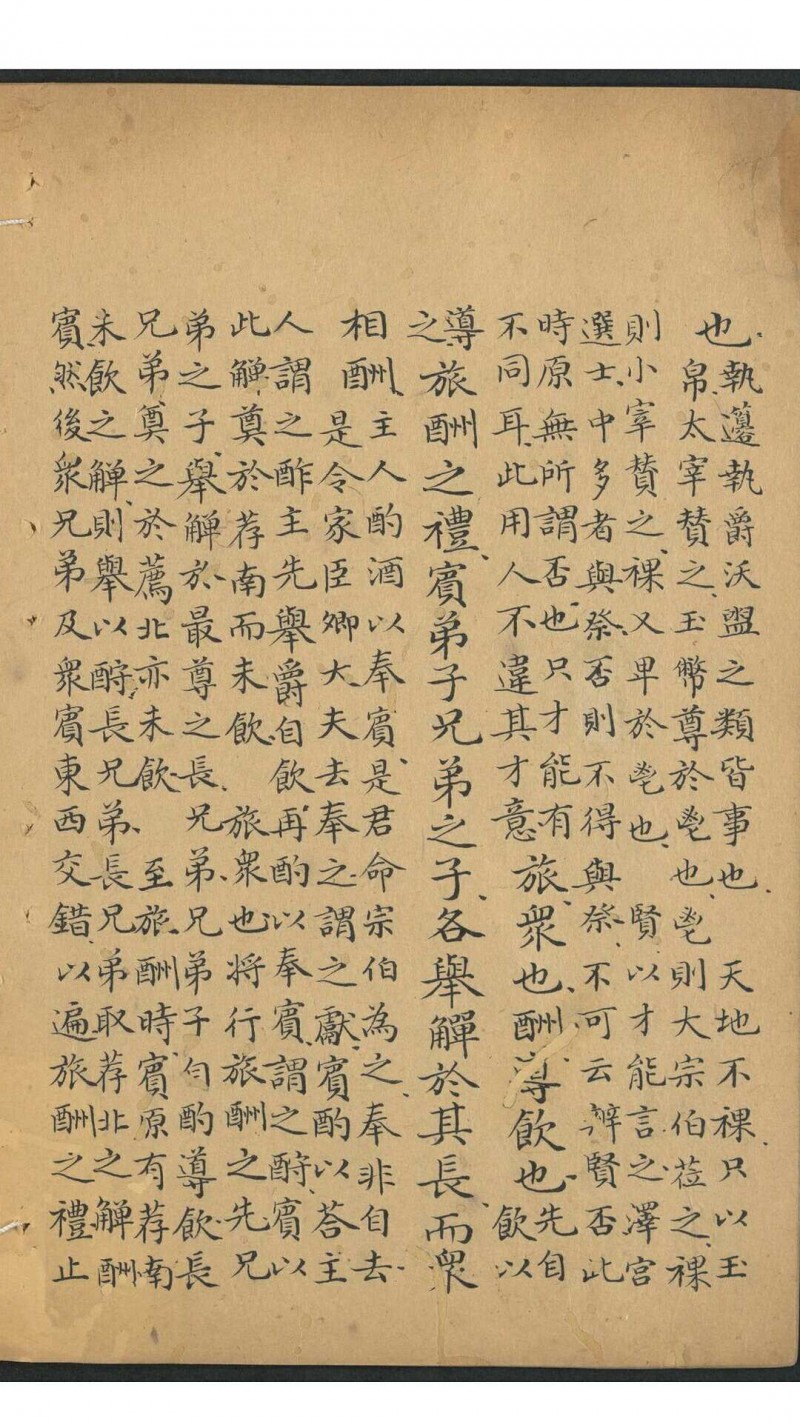 也
執籩執爵沃盥之類皆事也 天地不祼只以玉
帛太宰贊之玉幣尊於鬯也鬯則大宗伯蒞之祼
則小宰贊之祼又卑於鬯也 賢以才能言之澤宮
選士中多者與祭否則不得與祭不可云辨賢否此
時原無所謂否也只才能有
不同耳此用人不違其才意
旅衆也酬導飲也
先自
飲以
導
之
旅酬之禮賓弟子兄弟之子各舉觶於其長而衆
相酬
主人酌酒以奉賓是君命宗伯為之奉非自去
是令家臣卿大夫去奉之謂之獻賓酌以荅主
人謂之酢主先舉爵自飲再酌以奉賓謂之酧賓以
此觶奠於荐南而未飲 旅衆也將行旅酬之先兄
弟之子舉觶於最尊之長 兄弟兄弟子勻酌導飲長
兄弟奠之於薦北亦未飲 至旅酬時賓原有荐南
未飲之觶則舉以酧長兄弟長兄弟取荐北之觶酬
賓然後衆兄弟及衆賓東西交錯以遍旅酬之禮止